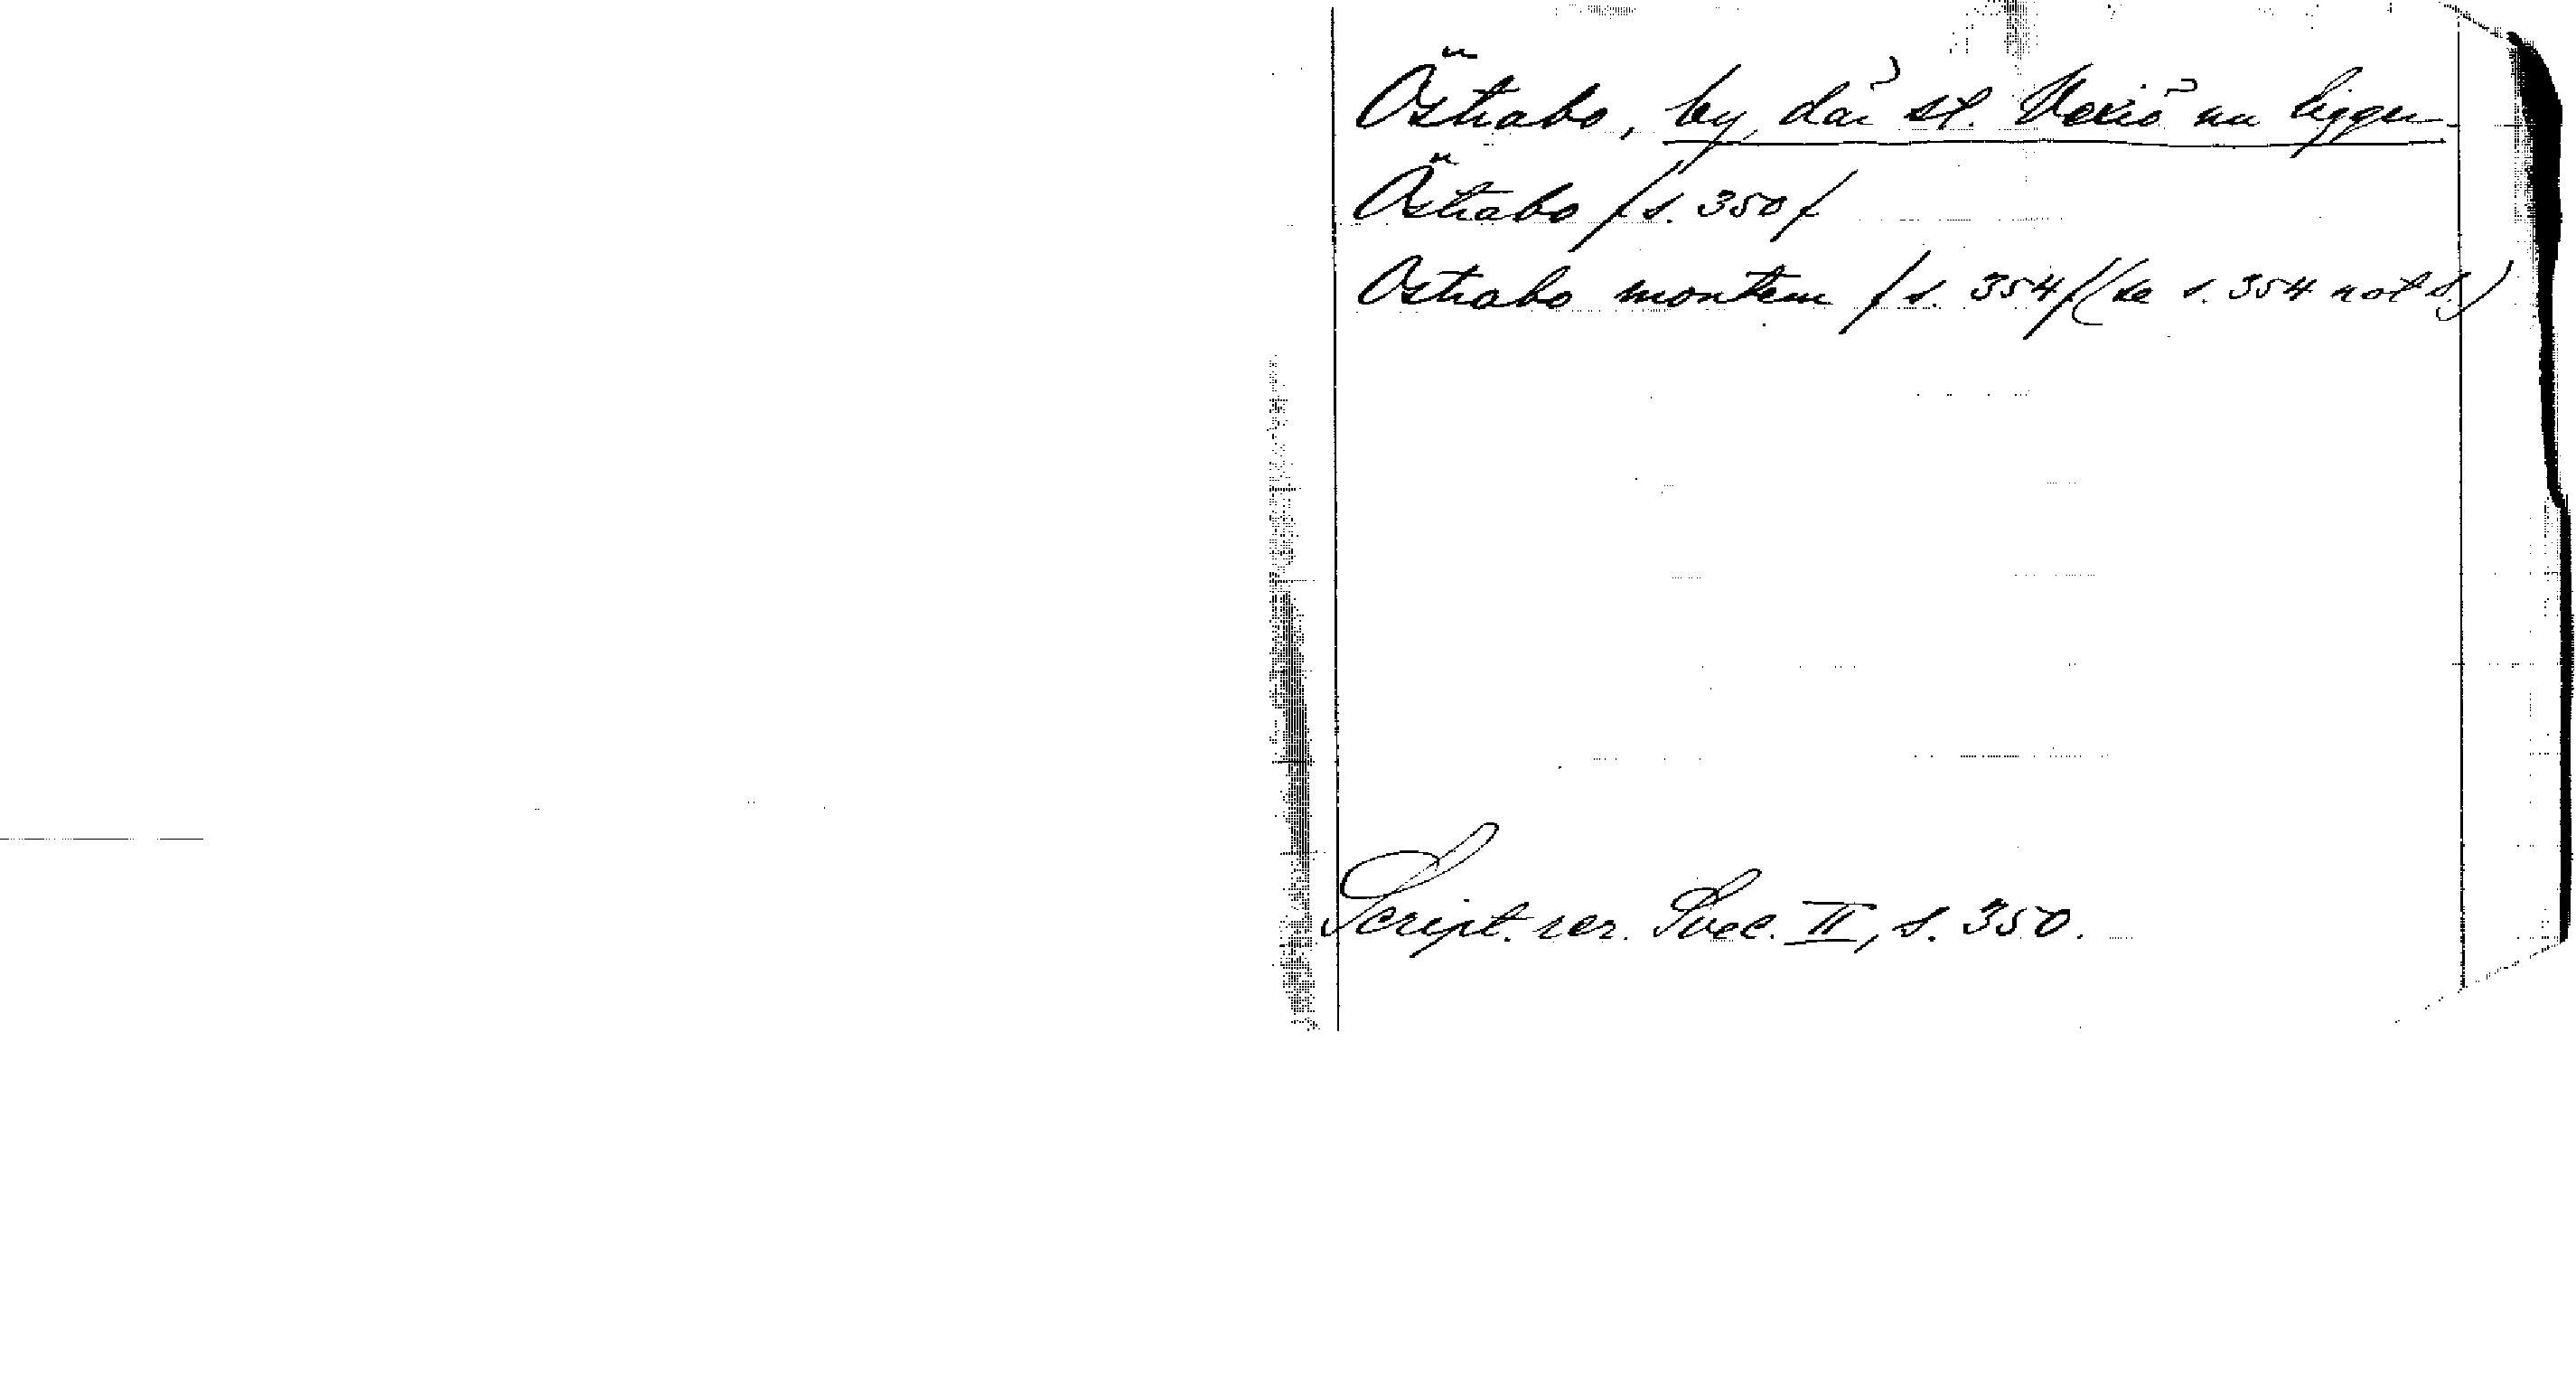 Östrabo, by, där st. Vexiö nu ligger
Östrabo /s. 350/
Ostrabo montem /s. 354/ (se s. 354 not s.)
Script. rer. Svec. II, s. 350.